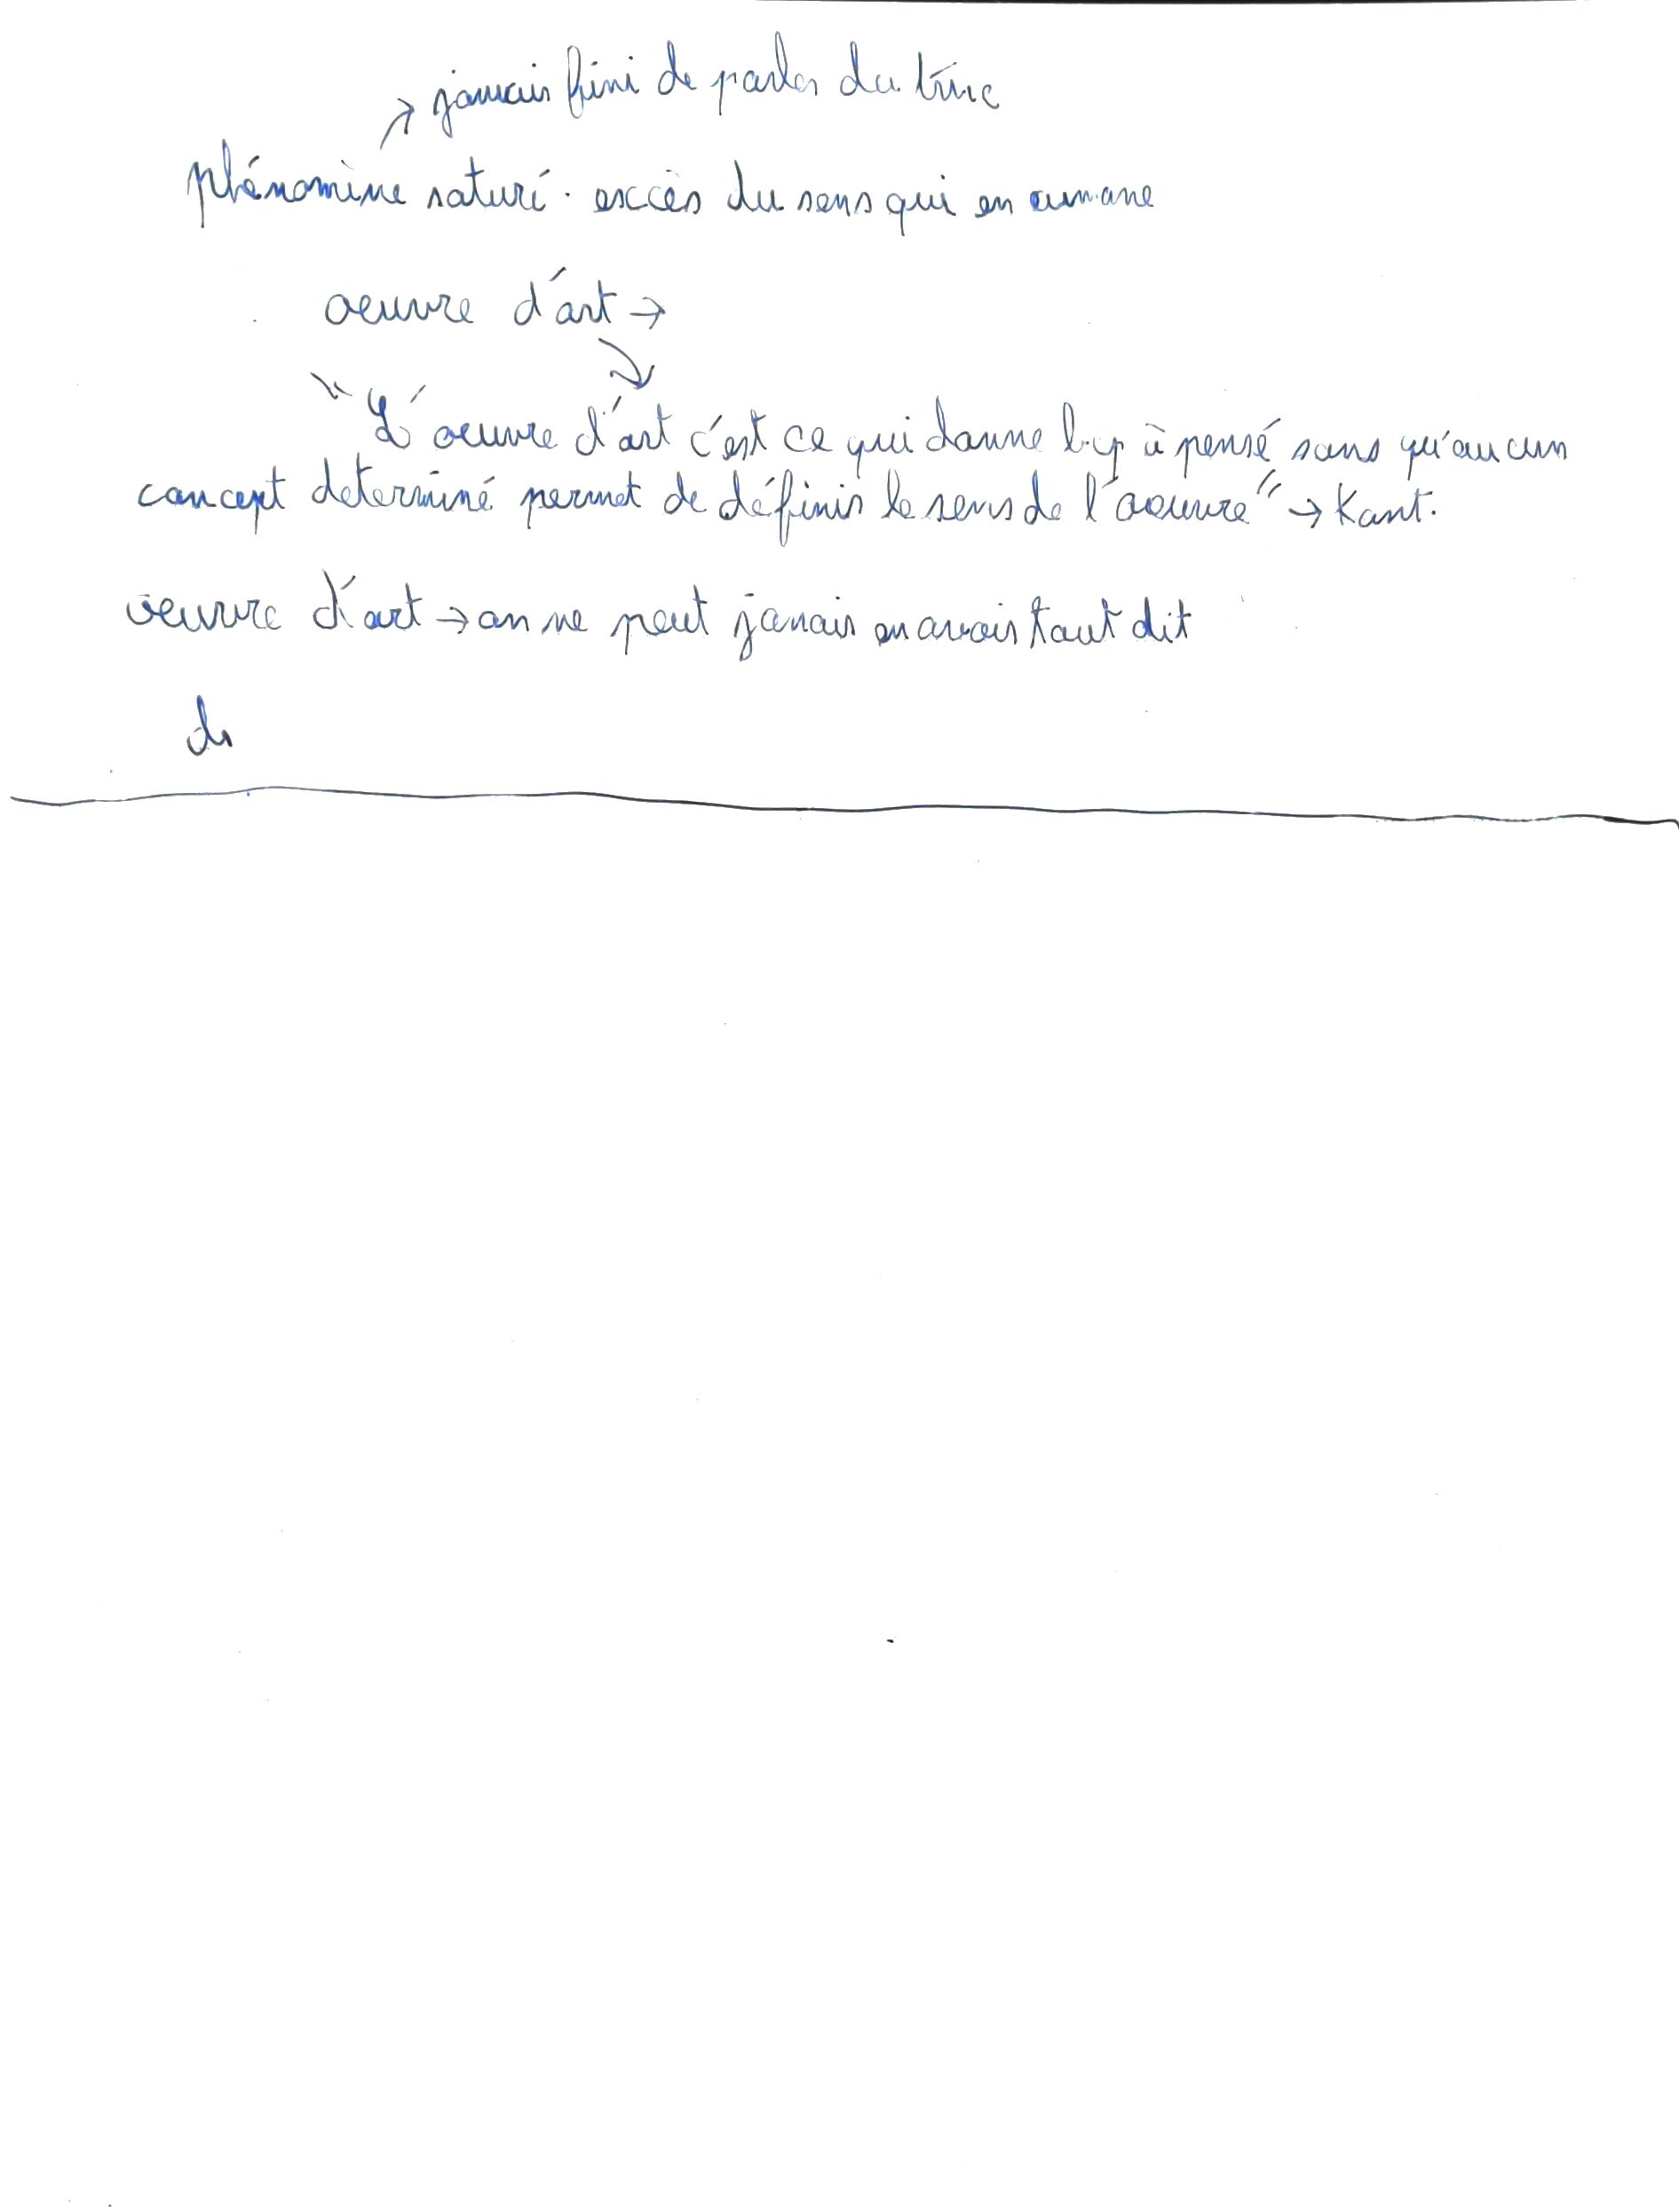 → jamais fini de parler du truc
phénomène saturé. excès du sens qui en aumane
oeuvre d'art →
"L'oeuvre d'art c'est ce qui donne bcp à pensé sans qu'aucun
concept determiné permet de définir le sens de l'oeuvre" → Kant.
oeuvre d'art → on ne peut jamais en avoir tout dit
de